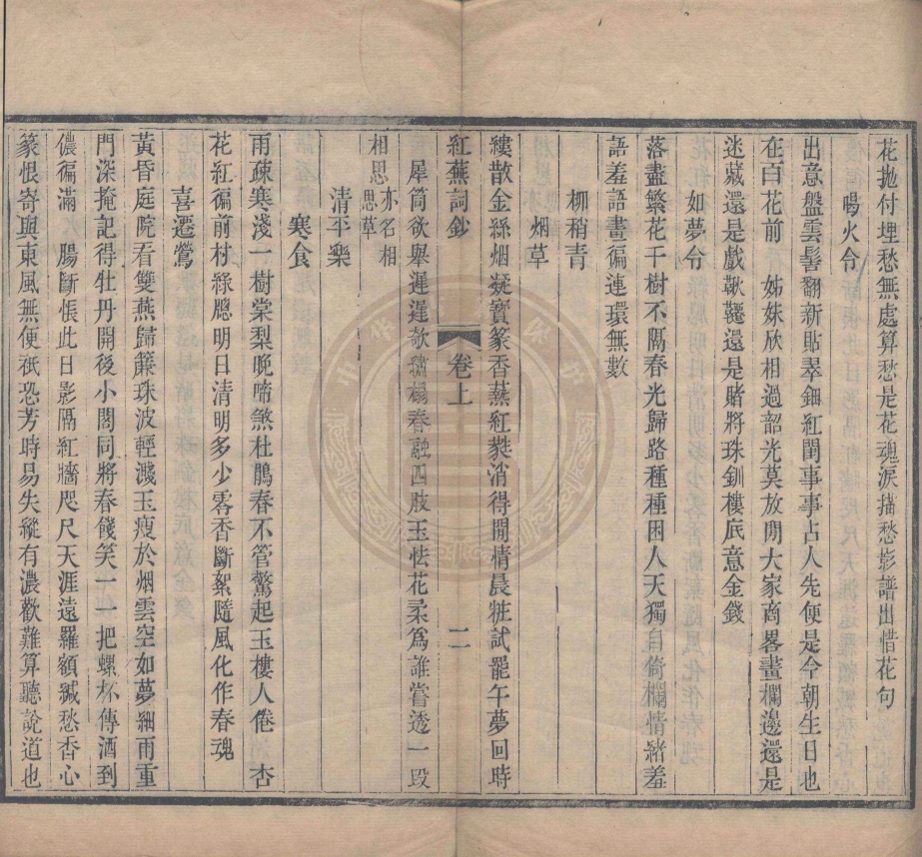 花拋付埋愁無處算愁是花魂淚描愁影譜出惜花句
喝火令
出意盤雲髻翻新貼翠鈿紅閨事事占人先便是今朝生日也
在百花前　姊妹欣相過韶光莫放閒大家商畧畫欄邊還是
迷藏還是戲鞦韆還是賭將珠釧樓底意金錢
如夢令
落盡繁花千樹不隔春光歸路種種困人天獨自倚欄情緒羞
語羞語畫徧連環無數
柳稍青
烟草
縷散金絲烟凝寶篆香蒸紅蕤消得閒情晨粧試罷午夢回時
紅蕪詞鈔
卷上
二
犀筒欲舉遲遲欹繡榻春融四肢玉怯花柔爲誰嘗透一段
相思亦名相思草
清平樂
寒食
雨疎寒淺一樹棠梨晚啼煞杜鵑春不管驚起玉樓人倦　杏
花紅徧前村綠牎明日清明多少客香斷絮隨風化作春魂
喜遷鶯
黃昏庭院看雙燕歸簾珠波輕濺玉瘦於烟雲空如夢細雨重
門深掩記得牡丹開後小閣同將春餞笑一一把螺杯傳酒到
儂徧滿　腸斷悵此日影隔紅牆咫尺天涯遠羅額緘愁香心
篆恨寄與東風無便祇恐芳時易失縱有濃歡難算聽說道也